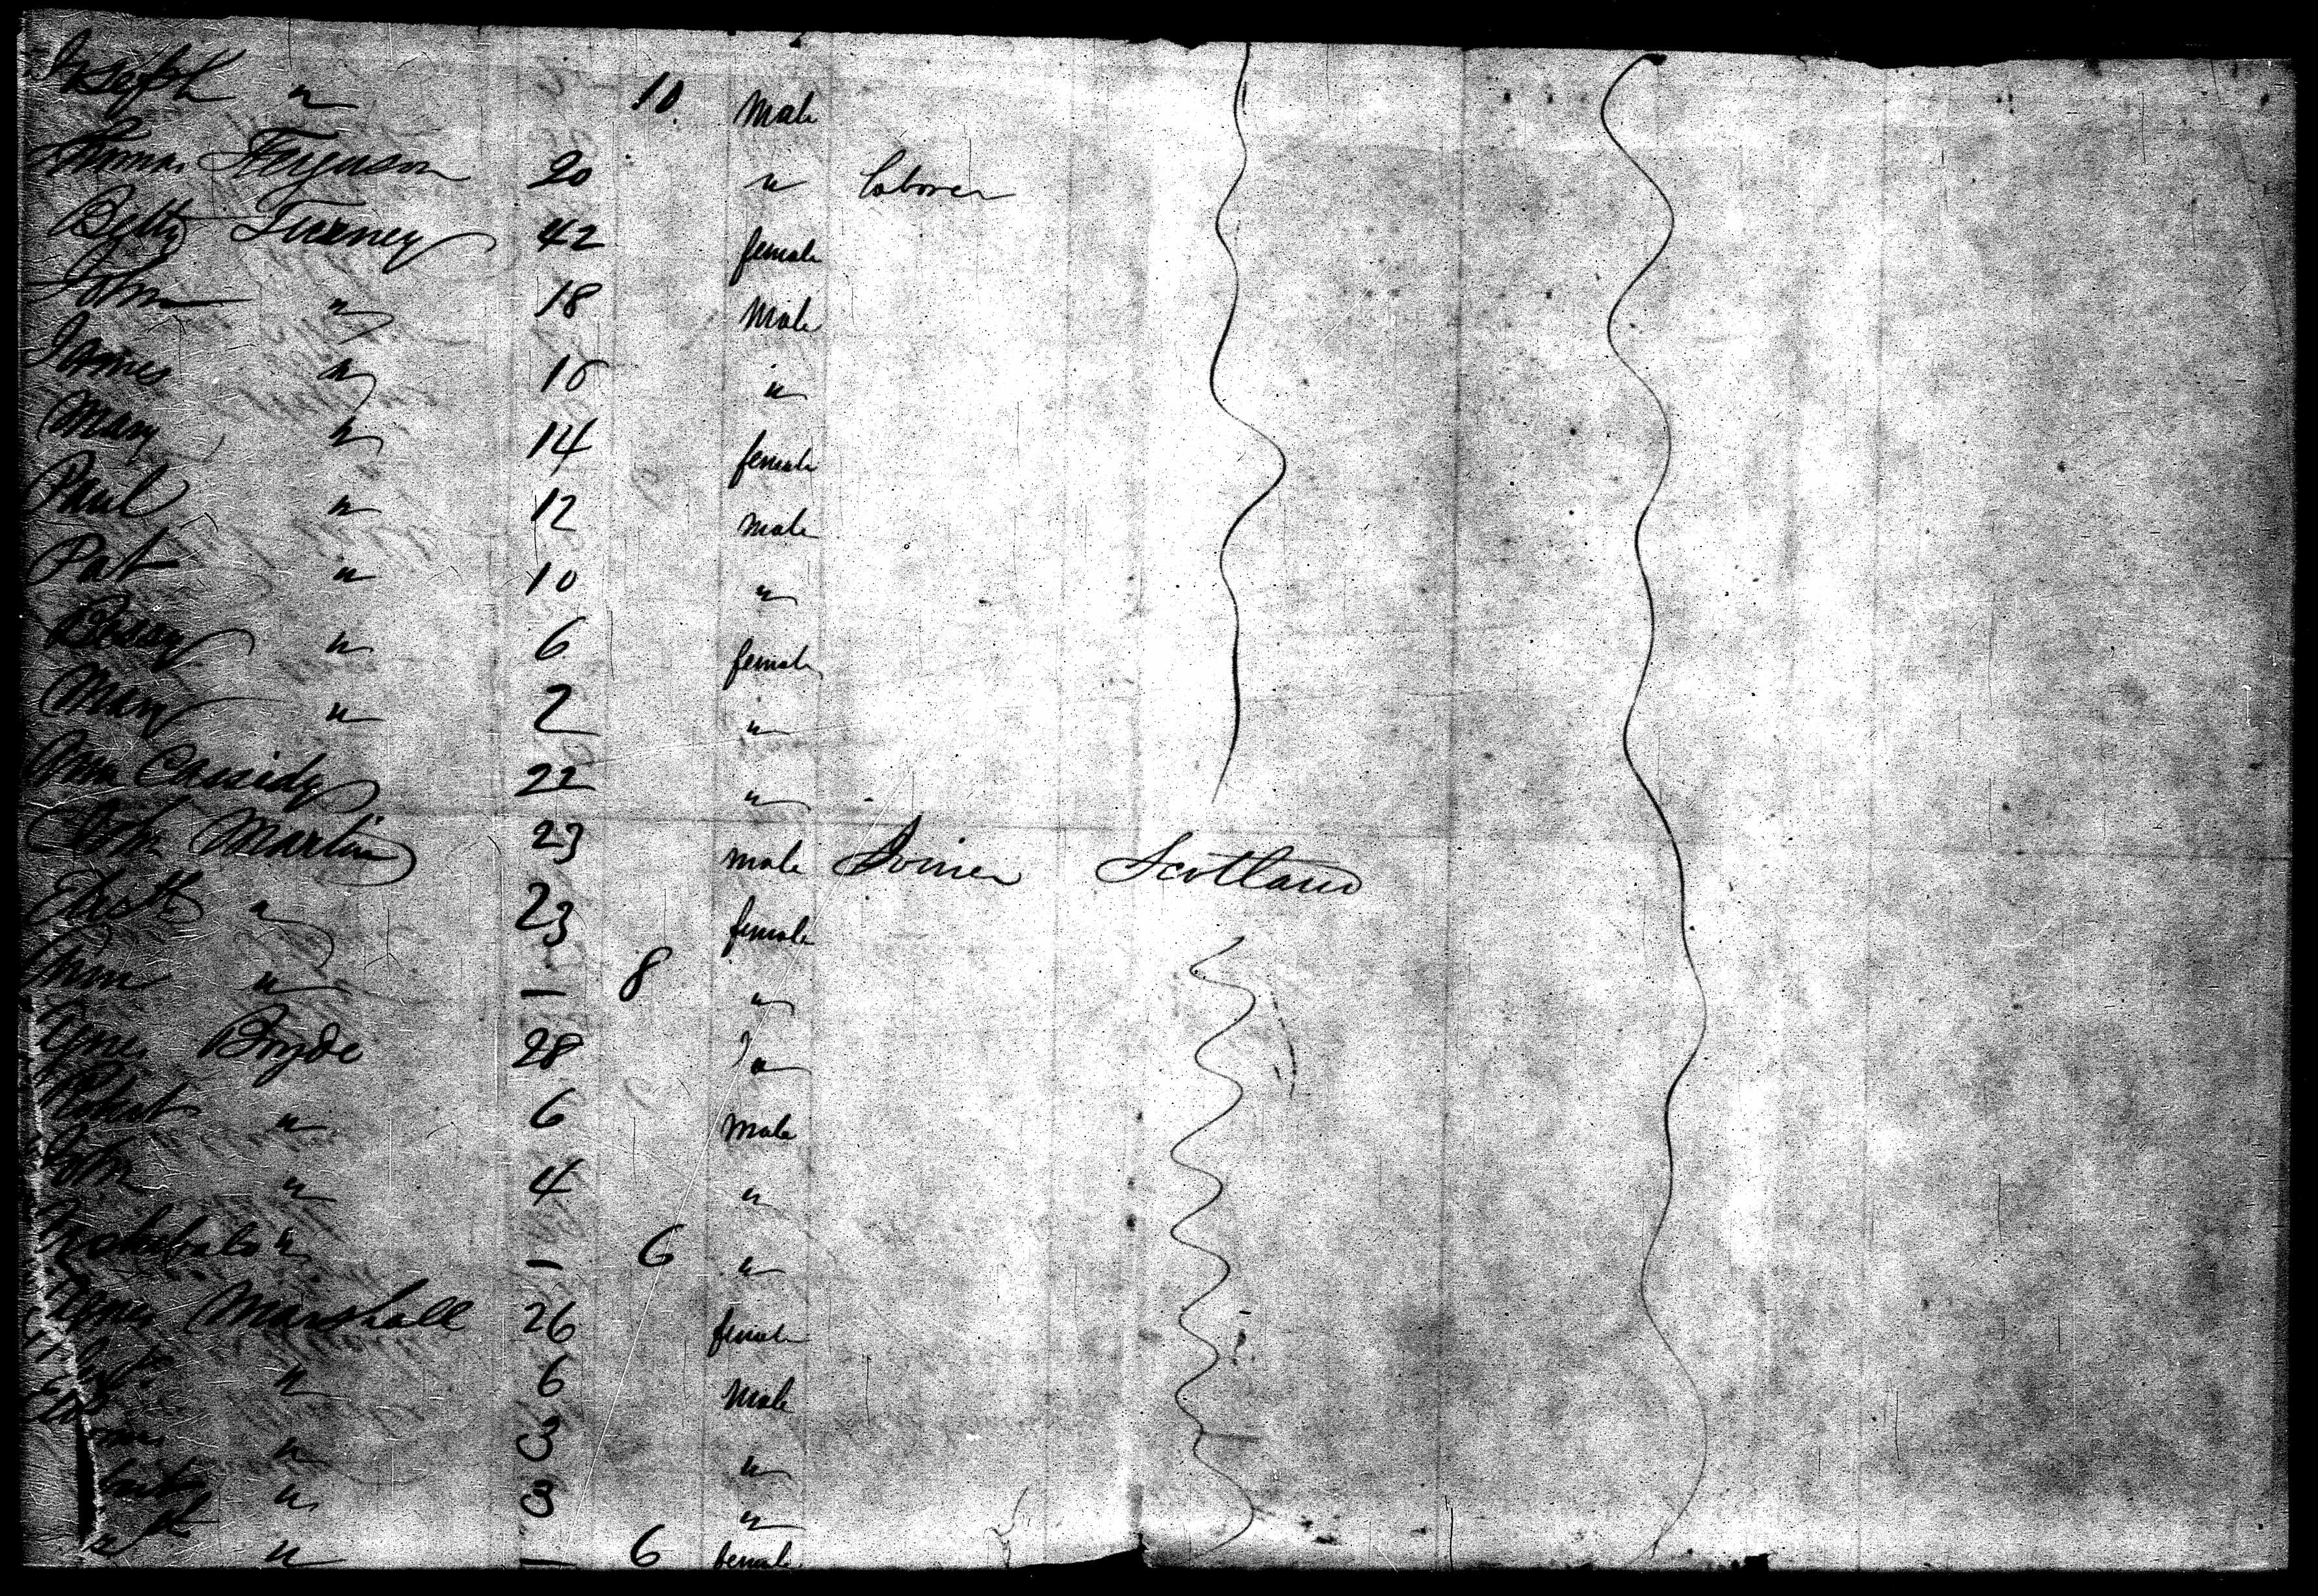 Joseph " 10 Male
Thomas Ferguson 20 " laborer
Betty Tierney 42 female
John " 18 Male
James " 16 "
Mary " 14 female
Paul " 12 male
Pat " 10 "
Bessy " 6 female
Mary " 2 "
Ann Cassidy 22 "
John Martin 23 male Joiner Scotland
Elisth " 23 female
Ann " — 8 "
Agnes Bryde 28 "
Robert " 6 Male
John " 4 "
Archibald " — 6 "
Agnes Marshall 26 female
" 6 Male
" 3 "
" 3 "
" — 6 female